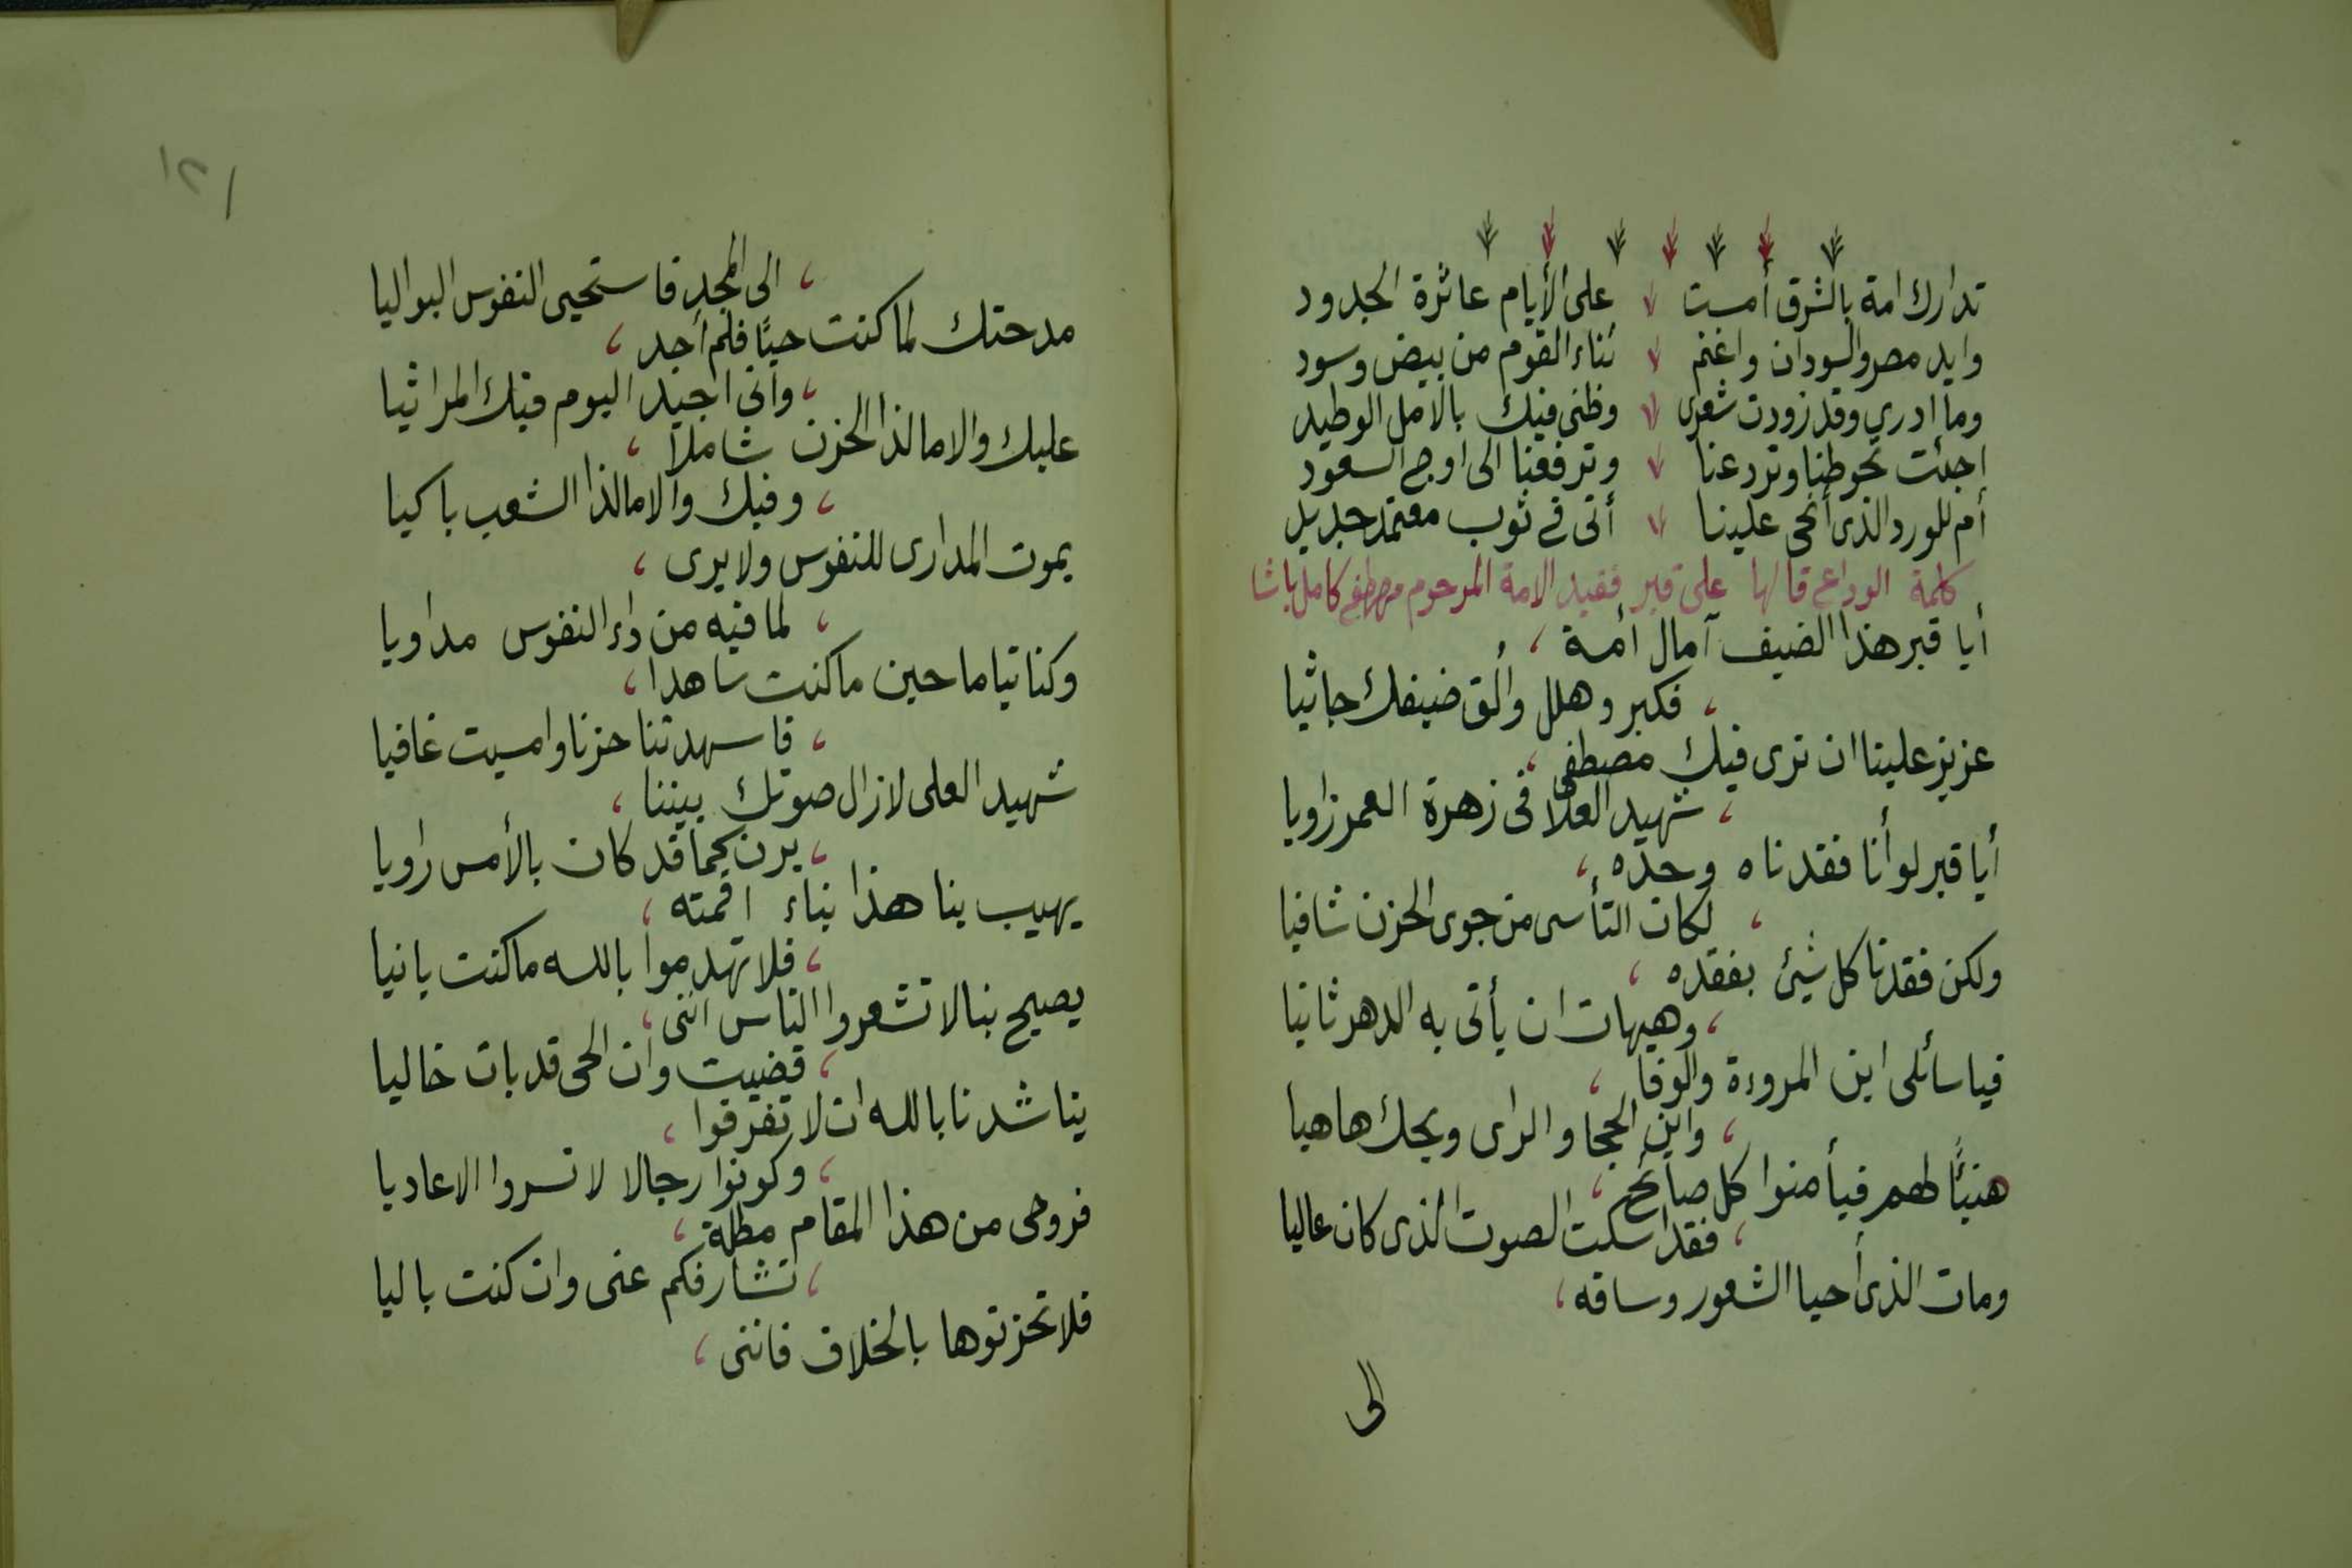 تدارك امة بالشرق أمست على الأيام عاثرة الجدود
وايد مصر والسودان واغنم ثناء القوم من بيض وسود
وما ادرى وقد زودت شعرى وظنى فيك بالامل الوطيد
اجئت تحوطنا وتردعنا وترفعنا الى اوج السعود
أم للورد الذى أنحى علينا أتى فى ثوب معتمد جديد
كلمة الوداع قالها على قبر فقيد الامة المرحوم مصطفى كامل باشا
أيا قبر هذا الضيف آمال أمة ،
، فكبر وهلل وألق ضيفك جاثيا
عزيز علينا ان نرى فيك مصطفى ،
، شهيد العلا فى زهرة العمر زاويا
أيا قبر لو أنا فقدناه وحده ،
، لكان التأسى من جوى الحزن شافيا
ولكن فقدنا كل شيئ بفقده ،
، وهيهات ان يأتى به الدهر ثانيا
فيا سائلى اين المروءة والوفا ،
، واين الحجا والراى ويحك هاهيا
هنيئًا لهم فيأمنوا كل صائح ،
، فقد اسكت الصوت الذى كان عاليا
ومات الذى أحيا الشعور وساقه ،
الى
١٢١
، الى المجد فاستحيى النفوس البواليا
مدحتك لما كنت حيًا فلم أجد ،
، وانى اجيد اليوم فيك المراثيا
عليك والا مالذا الحزن شاملا ،
، وفيك والا مالذا الشعب باكيا
يموت المدارى للنفوس ولا يرى ،
، لما فيه من داء النفوس مداويا
وكنا نياما حين ما كنت ساهدا ،
، فاسهدتنا حزنا وامسيت غافيا
شهيد العلى لازال صوتك بيننا ،
، يرن كما قد كان بالأمس راويا
يهيب بنا هذا بناء اقمته ،
، فلا تهدموا بالله ما كنت بانيا
يصيح بنا لا تشعروا الناس اننى ،
، قضيت وان الحى قد بات خاليا
يناشدنا بالله ان لا تفرقوا ،
، وكونوا رجالا لا تسروا الاعاديا
فروحى من هذا المقام مطلة ،
، تشارفكم عنى وان كنت باليا
فلا تحزنوها بالخلاف فاننى ،